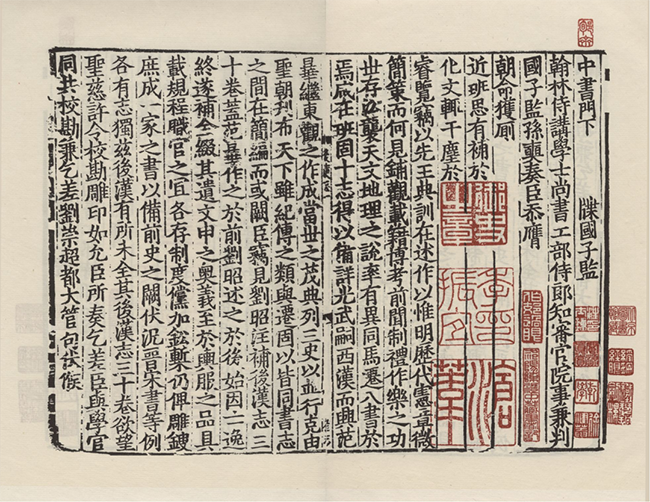 中書門下　牒國子監
翰林侍講學士尚書工部侍郎知審官院事兼判
國子監孫奭奏臣忝膺
朝命獲厠
近班思有補於
化文輒干塵於
睿覽竊以先王典訓在述作以惟明歷代憲章微
簡策而何見鋪觀載籍博考前聞制禮作樂之功
世存沿襲天文地理之說率有異同馬遷八書於
焉咸在班固十志得以備詳光武嗣西漢而興范
曄繼東觀之作成當世之茂典列三史以並行克由
聖朝刊布天下雖紀傳之類與遷固以皆同書志
之間在簡編而或闕臣竊見劉昭注補後漢志三
十卷蓋范曄作之於前劉昭述之於後始因亡逸
終遂補全綴其遺文申之奧義至於輿服之品具
載規程職官之宜各存制度儻加鉛槧仍俾雕鎪
庶成一家之書以備前史之闕伏況晉宋書等例
各有志獨茲後漢有所未全其後漢志三十卷欲望
聖慈許令校勘雕印如允臣所奏乞差臣與學官
同共校勘兼乞差劉崇超都大管勾伏候